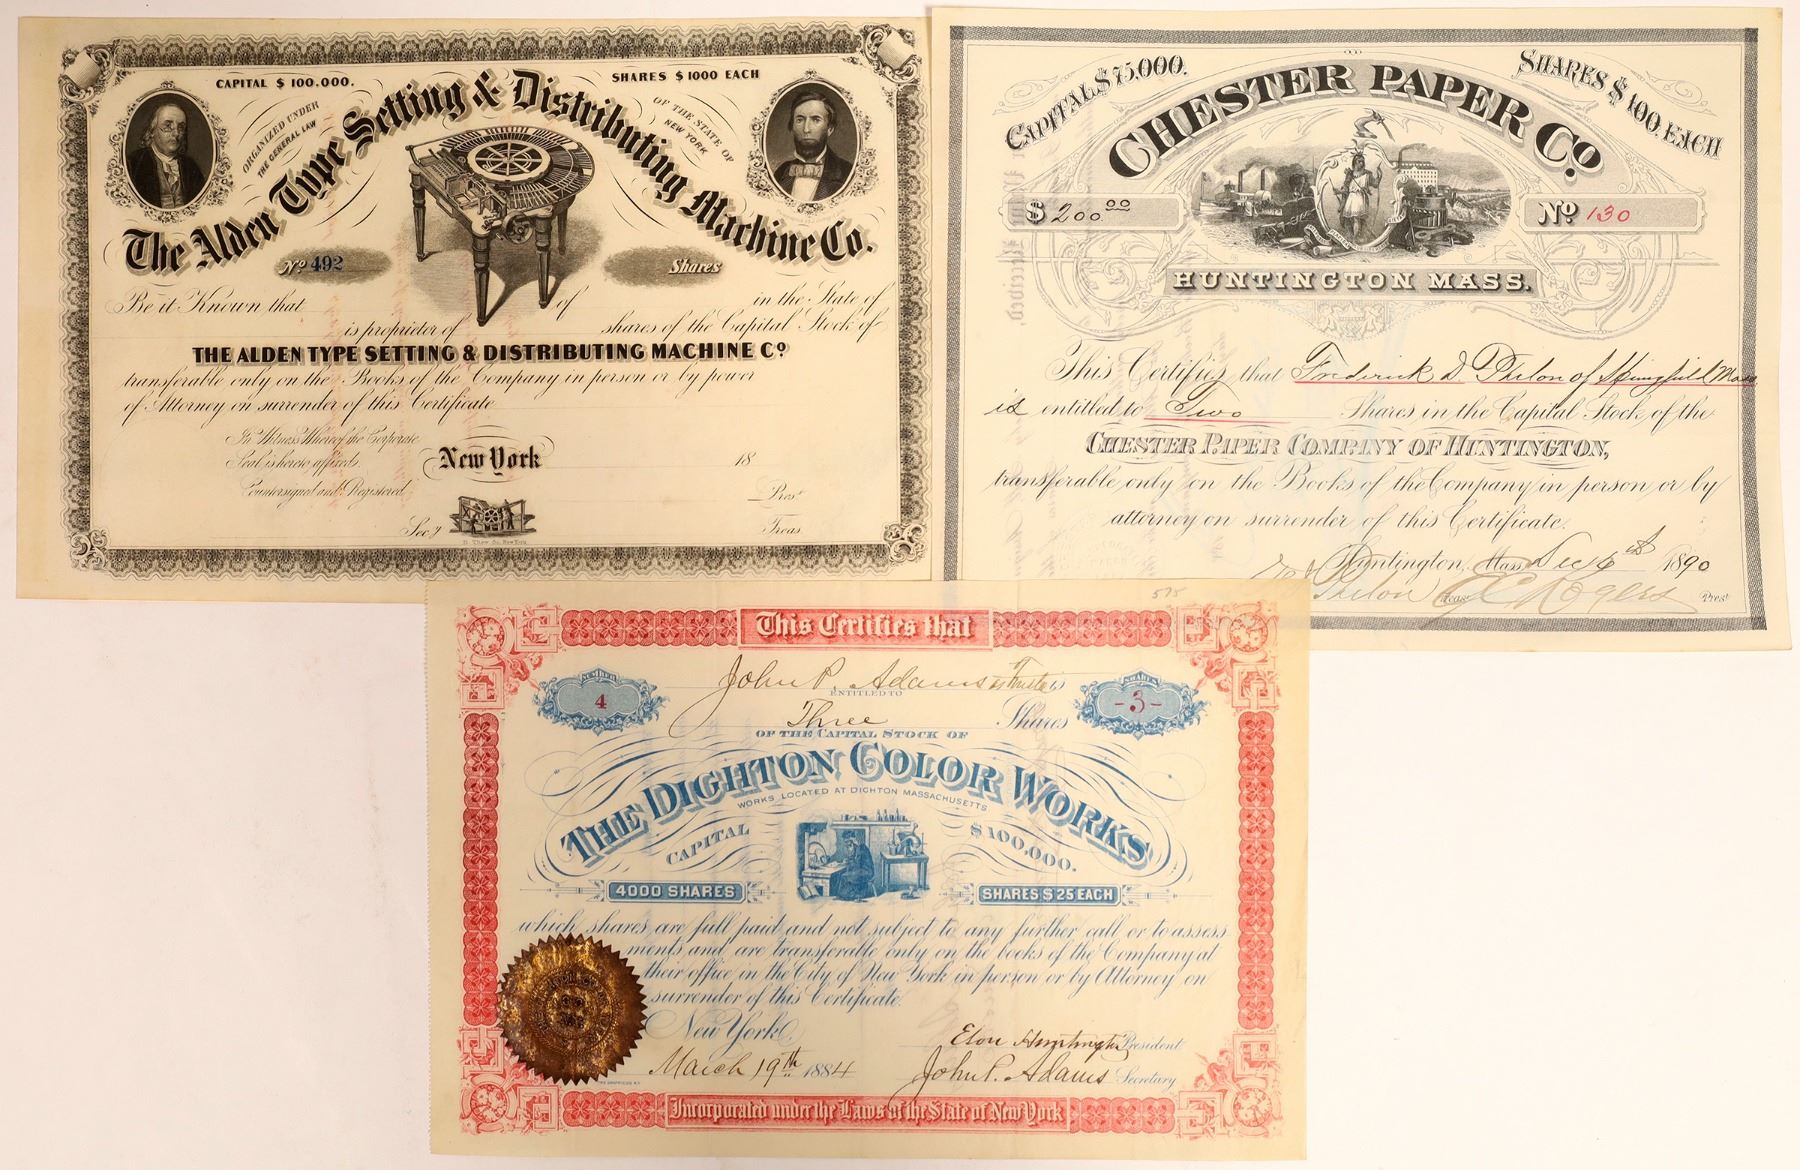 CAPITAL $ 100.000.
SHARES $ 1000 EACH
ORGANIZED UNDER
THE GENERAL LAW
OF THE STATE OF
NEW YORK
The Alden Type Setting & Distributing Machine Co.
No 492
Shares
Be it Known that of in the State of
is proprietor of shares of the Capital Stock of
THE ALDEN TYPE SETTING & DISTRIBUTING MACHINE Co
transferable only on the Books of the Company in person or by power
of Attorney on surrender of this Certificate
In Witness Whereof the Corporate
Seal is hereto affixed.
Countersigned and Registered
New York 18
Prest
Secy
Treas.
CAPITAL $75,000.
SHARES $100. EACH
CHESTER PAPER Co.
$ 200 00
No 130
HUNTINGTON MASS.
This Certifies that Frederick D. Phelon of Springfield Mass
is entitled to Two Shares in the Capital Stock of the
CHESTER PAPER COMPANY OF HUNTINGTON,
transferable only on the Books of the Company in person or by
attorney on surrender of this Certificate.
Huntington, Mass Dec 6th 1890
Phelon Treas E C Rogers Prest
575
This Certifies that
John P. Adams as Trustee is
NUMBER
4
ENTITLED TO
SHARES
-3-
Three Shares
OF THE CAPITAL STOCK OF
THE DIGHTON COLOR WORKS
WORKS LOCATED AT DIGHTON MASSACHUSETTS
CAPITAL $100,000.
4000 SHARES
SHARES $25 EACH
which shares are full paid and not subject to any further call or to assess
ments and are transferable only on the books of the Company at
their office in the City of New York in person or by Attorney on
surrender of this Certificate.
New York,
March 19th 1884
Elon Huntington President
John P. Adams Secretary
Incorporated under the Laws of the State of New York